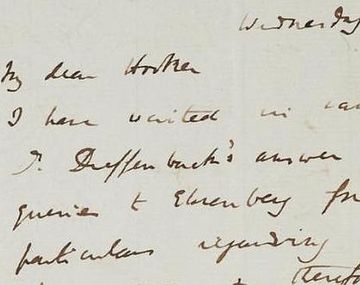 Wednesday
My dear Hooker
I have waited in
J. Dieffenbach's answer
queries to Ehrenberg for
particulars regarding